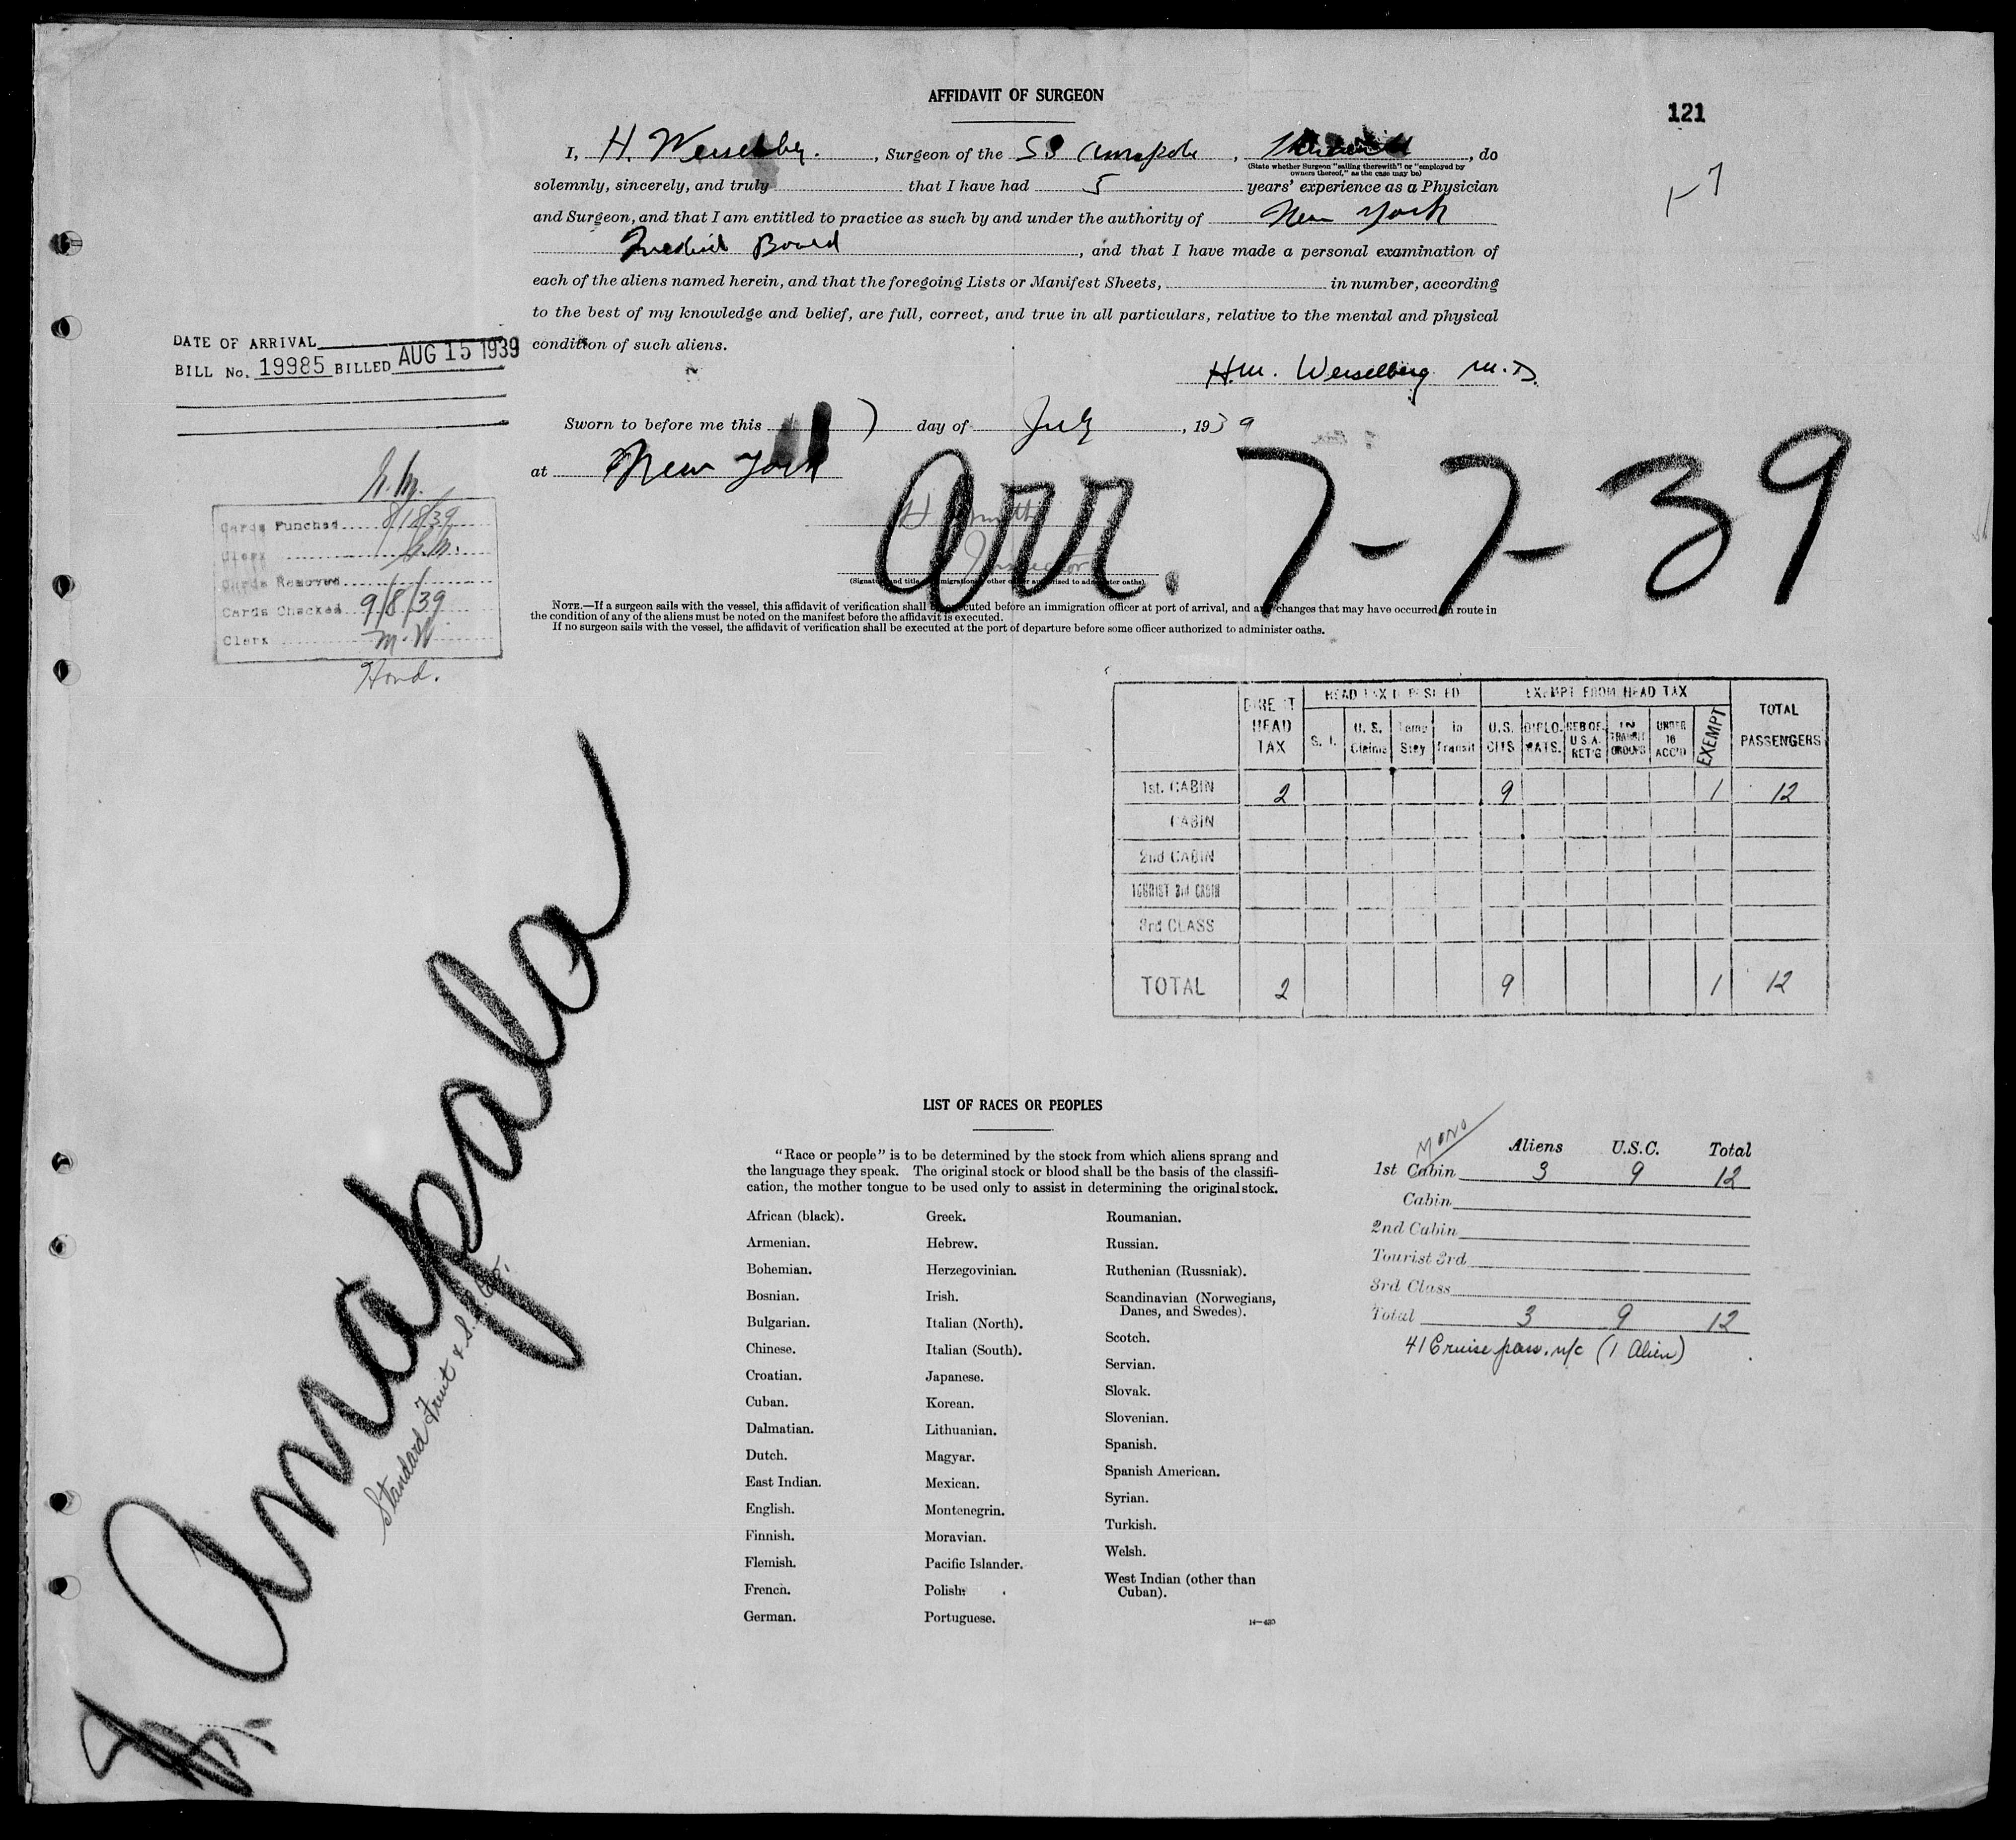 AFFIDAVIT OF SURGEON
121
I, H. Weiselberg. , Surgeon of the SS Amapala , , do
(State whether Surgeon "sailing therewith" or "employed by
owners thereof," as the case may be)
solemnly, sincerely, and truly that I have had 5 years' experience as a Physician
and Surgeon, and that I am entitled to practice as such by and under the authority of New York
Medical Board , and that I have made a personal examination of
each of the aliens named herein, and that the foregoing Lists or Manifest Sheets, in number, according
to the best of my knowledge and belief, are full, correct, and true in all particulars, relative to the mental and physical
condition of such aliens.
H.M. Weiselberg M.D.
DATE OF ARRIVAL
BILL No. 19985 BILLED AUG 15 1939
Sworn to before me this 7 day of July , 1939
at New York
Arr. 7-7-39
H. Smith
Inspector
(Signature and title of immigration or other officer authorised to administer oaths)
Cards Punched 8/18/39
Clerk
Cards Removed
Cards Checked 9/8/39
Clerk M.W.
Hond.
NOTE.—If a surgeon sails with the vessel, this affidavit of verification shall be executed before an immigration officer at port of arrival, and any changes that may have occurred in route in
the condition of any of the aliens must be noted on the manifest before the affidavit is executed.
If no surgeon sails with the vessel, the affidavit of verification shall be executed at the port of departure before some officer authorized to administer oaths.
HEAD TAX DEPOSITED EXEMPT FROM HEAD TAX
DIRECT HEAD TAX S. I. U. S. Claims Temp Stay In Transit U.S. CITS DIPLO. MATS. RES OF U.S.A. RET'G IN TRANSIT GROUPS UNDER 16 ACC'D EXEMPT TOTAL PASSENGERS
1st. CABIN 2 9 1 12
CABIN
2nd CABIN
TOURIST 3rd CABIN
3rd CLASS
TOTAL 2 9 1 12
Amapala
Standard Fruit & S.S. Co.
LIST OF RACES OR PEOPLES
"Race or people" is to be determined by the stock from which aliens sprang and
the language they speak. The original stock or blood shall be the basis of the classifi-
cation, the mother tongue to be used only to assist in determining the original stock.
African (black).
Armenian.
Bohemian.
Bosnian.
Bulgarian.
Chinese.
Croatian.
Cuban.
Dalmatian.
Dutch.
East Indian.
English.
Finnish.
Flemish.
French.
German.
Greek.
Hebrew.
Herzegovinian.
Irish.
Italian (North).
Italian (South).
Japanese.
Korean.
Lithuanian.
Magyar.
Mexican.
Montenegrin.
Moravian.
Pacific Islander.
Polish.
Portuguese.
Roumanian.
Russian.
Ruthenian (Russniak).
Scandinavian (Norwegians,
Danes, and Swedes).
Scotch.
Servian.
Slovak.
Slovenian.
Spanish.
Spanish American.
Syrian.
Turkish.
Welsh.
West Indian (other than
Cuban).
14—420
Aliens U.S.C. Total
1st Cabin 3 9 12
Cabin
2nd Cabin
Tourist 3rd
3rd Class
Total 3 9 12
41 Cruise pass. n/c (1 Alien)